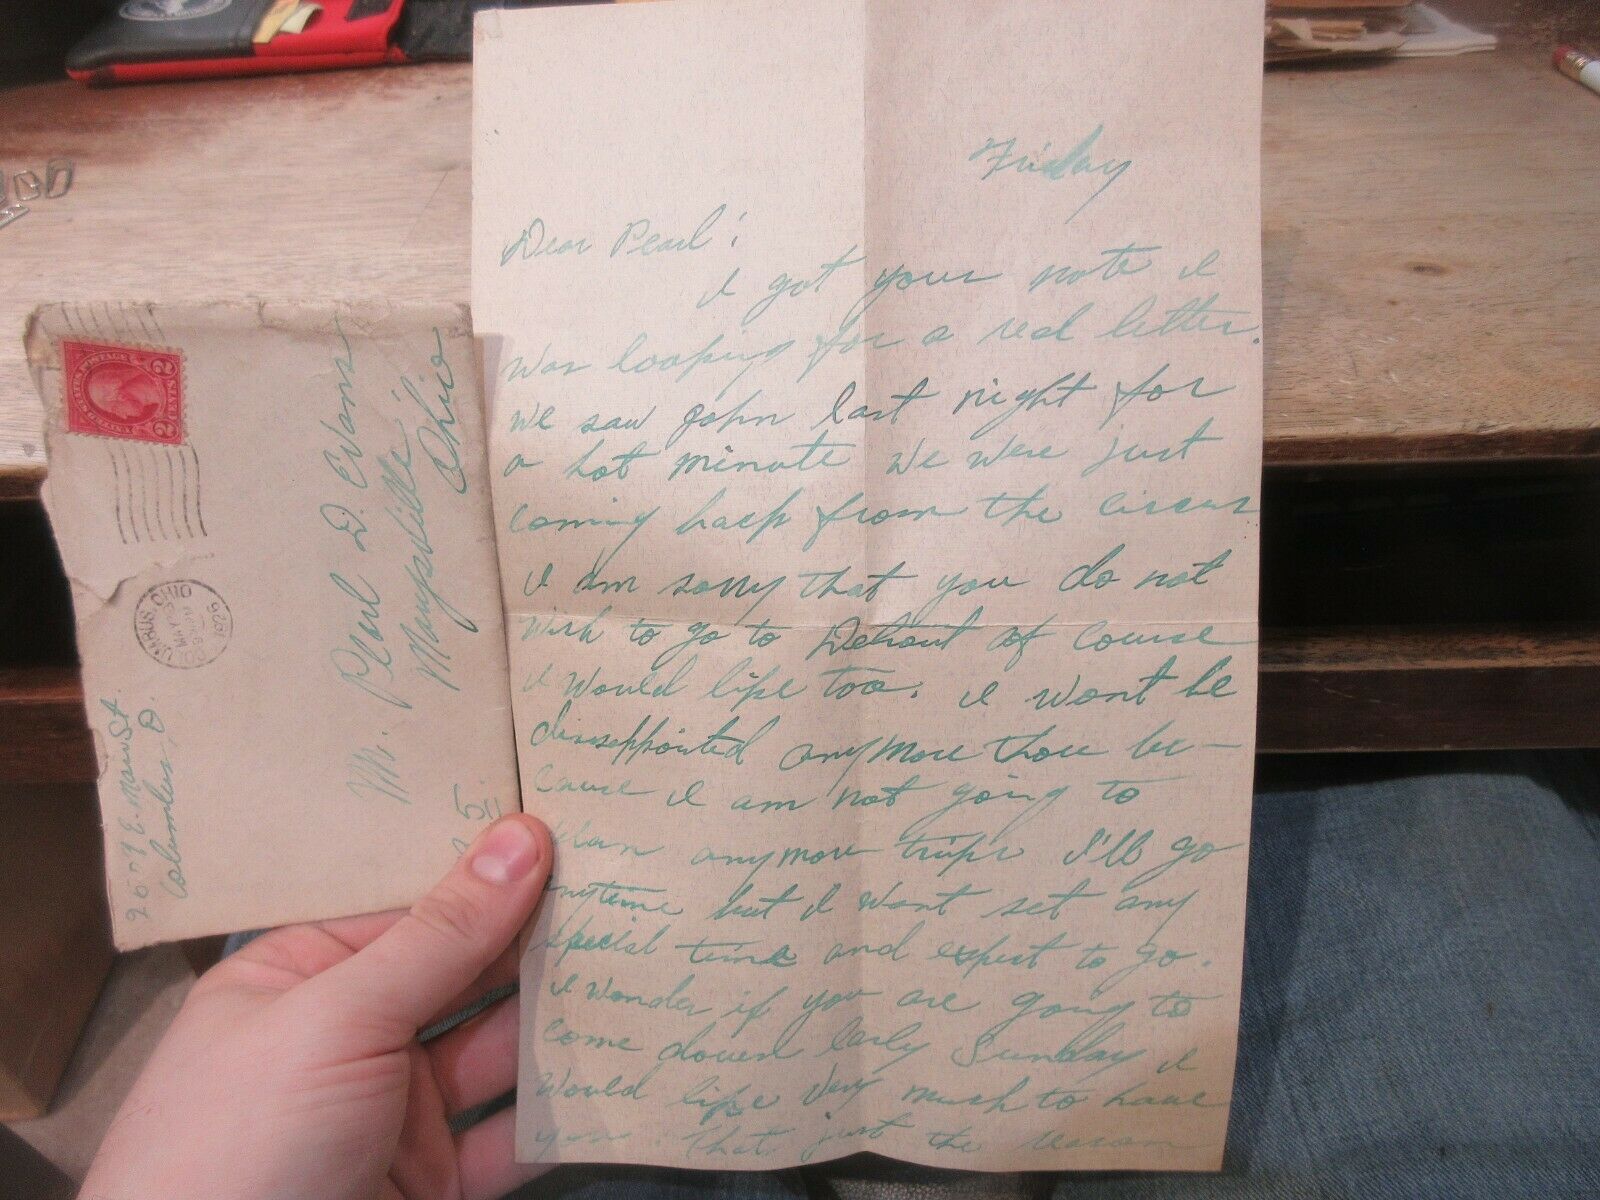 Friday
Dear Pearl:
I got your note I
was looking for a real letter.
We saw John last night for
a hot minute we were just
coming back from the circus
I am sorry that you do not
wish to go to Detroit of course
I would like too. I wont be
dissappointed anymore thou be-
cause I am not going to
plan anymore trips I'll go
anytime but I wont set any
special time and expect to go.
I wonder if you are going to
come down early Sunday I
would like very much to have
you. that just the reason
UNITED STATES POSTAGE
2 CENTS 2
COLUMBUS, OHIO
MAY
1926
Mr. Pearl D. Evans
Marysville,
Ohio
25.
2679 E. Main St.
Columbus, O.